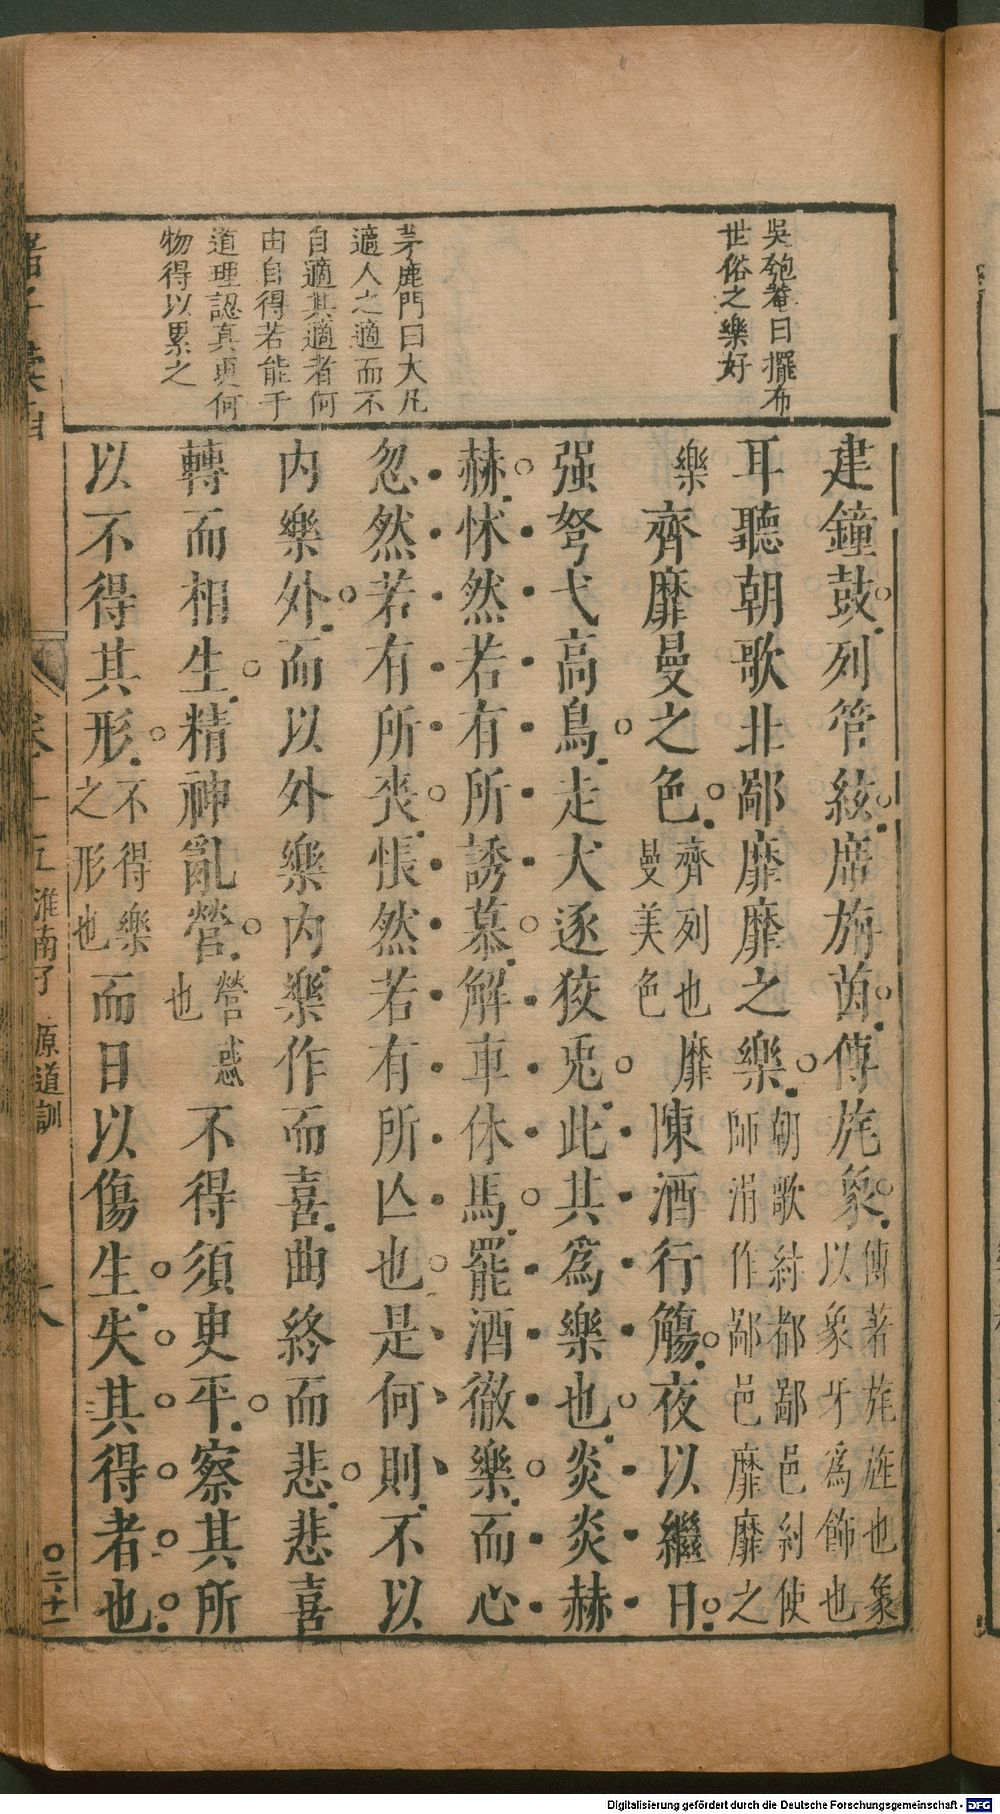 吳匏菴曰擺布
世俗之樂好
茅鹿門曰大凡
適人之適而不
自適其適者何
由自得若能于
道理認真更何
物得以累之
建鐘鼓列管絃席旃茵傅旄象傅著旄旌也象以象牙爲飾也
耳聽朝歌北鄙靡靡之樂朝歌紂都鄙邑紂使師涓作鄙邑靡靡之
樂齊靡曼之色齊列也靡曼美色陳酒行觴夜以繼日
强弩弋高鳥走犬逐狡兎此其爲樂也炎炎赫
赫怵然若有所誘慕解車休馬罷酒徹樂而心
忽然若有所喪悵然若有所亾也是何則不以
内樂外而以外樂内樂作而喜曲終而悲悲喜
轉而相生精神亂營營惑也不得須臾平察其所
以不得其形不得樂之形也而日以傷生失其得者也
諸子彙函
卷十五淮南子 原道訓
二十一
Digitalisierung gefördert durch die Deutsche Forschungsgemeinschaft - DFG